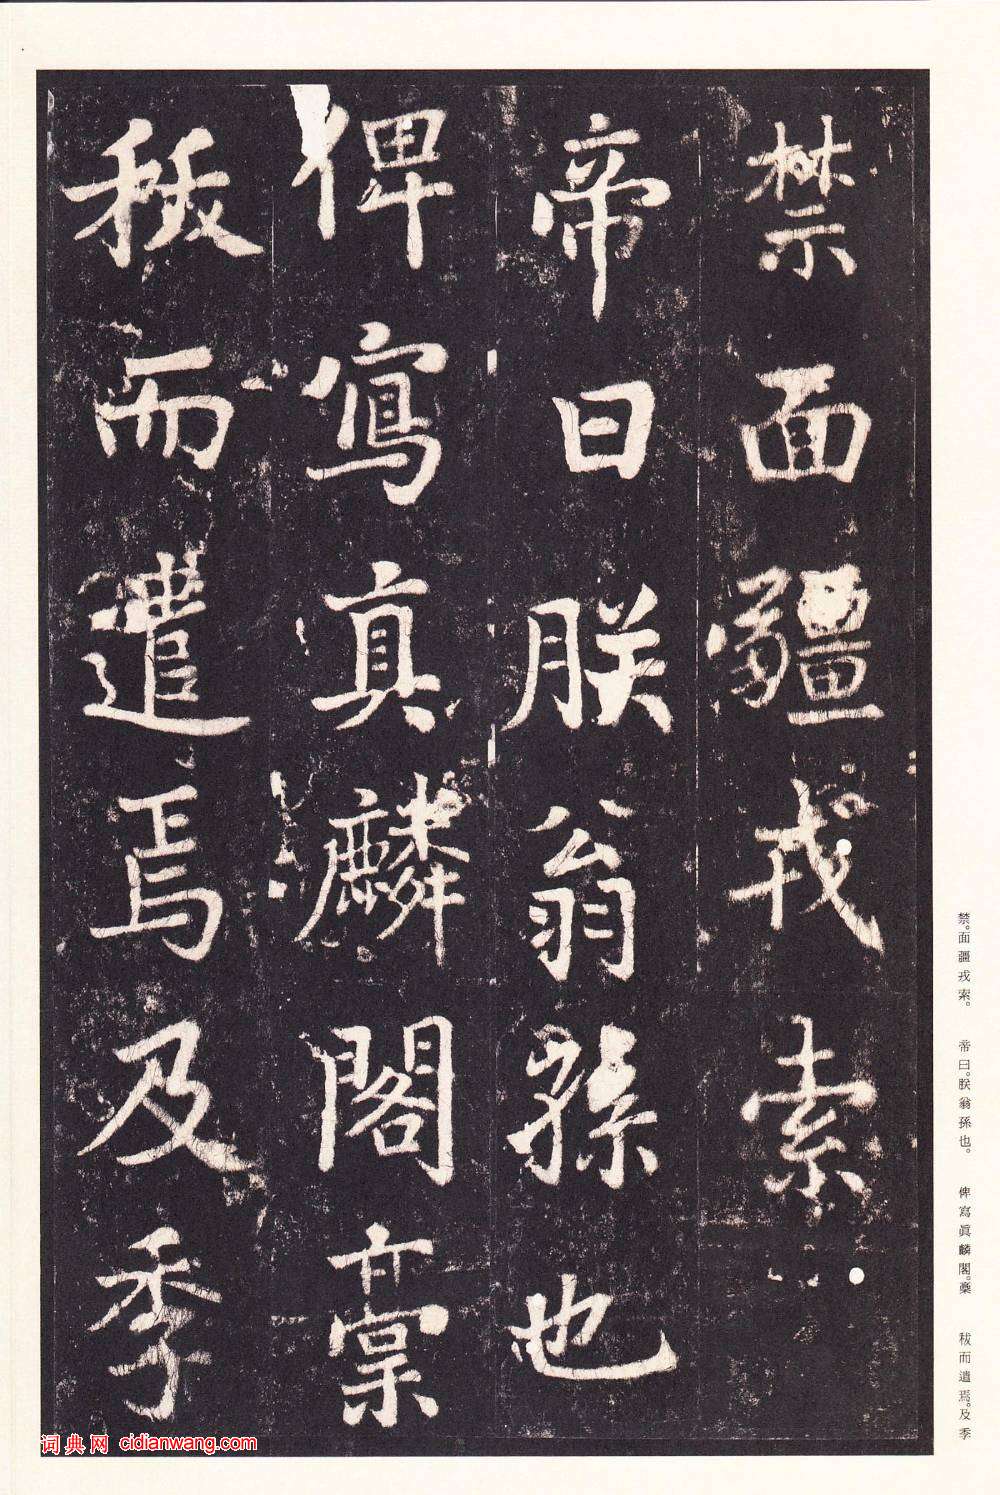 禁面疆戎索
帝曰朕翁孫也
俾寫真麟閣稾
秡而遣焉及季
禁。面疆戎索。 帝曰。朕翁孫也。 俾寫眞麟閣。稾 秡而遣焉。及季
词典网 cidianwang.com